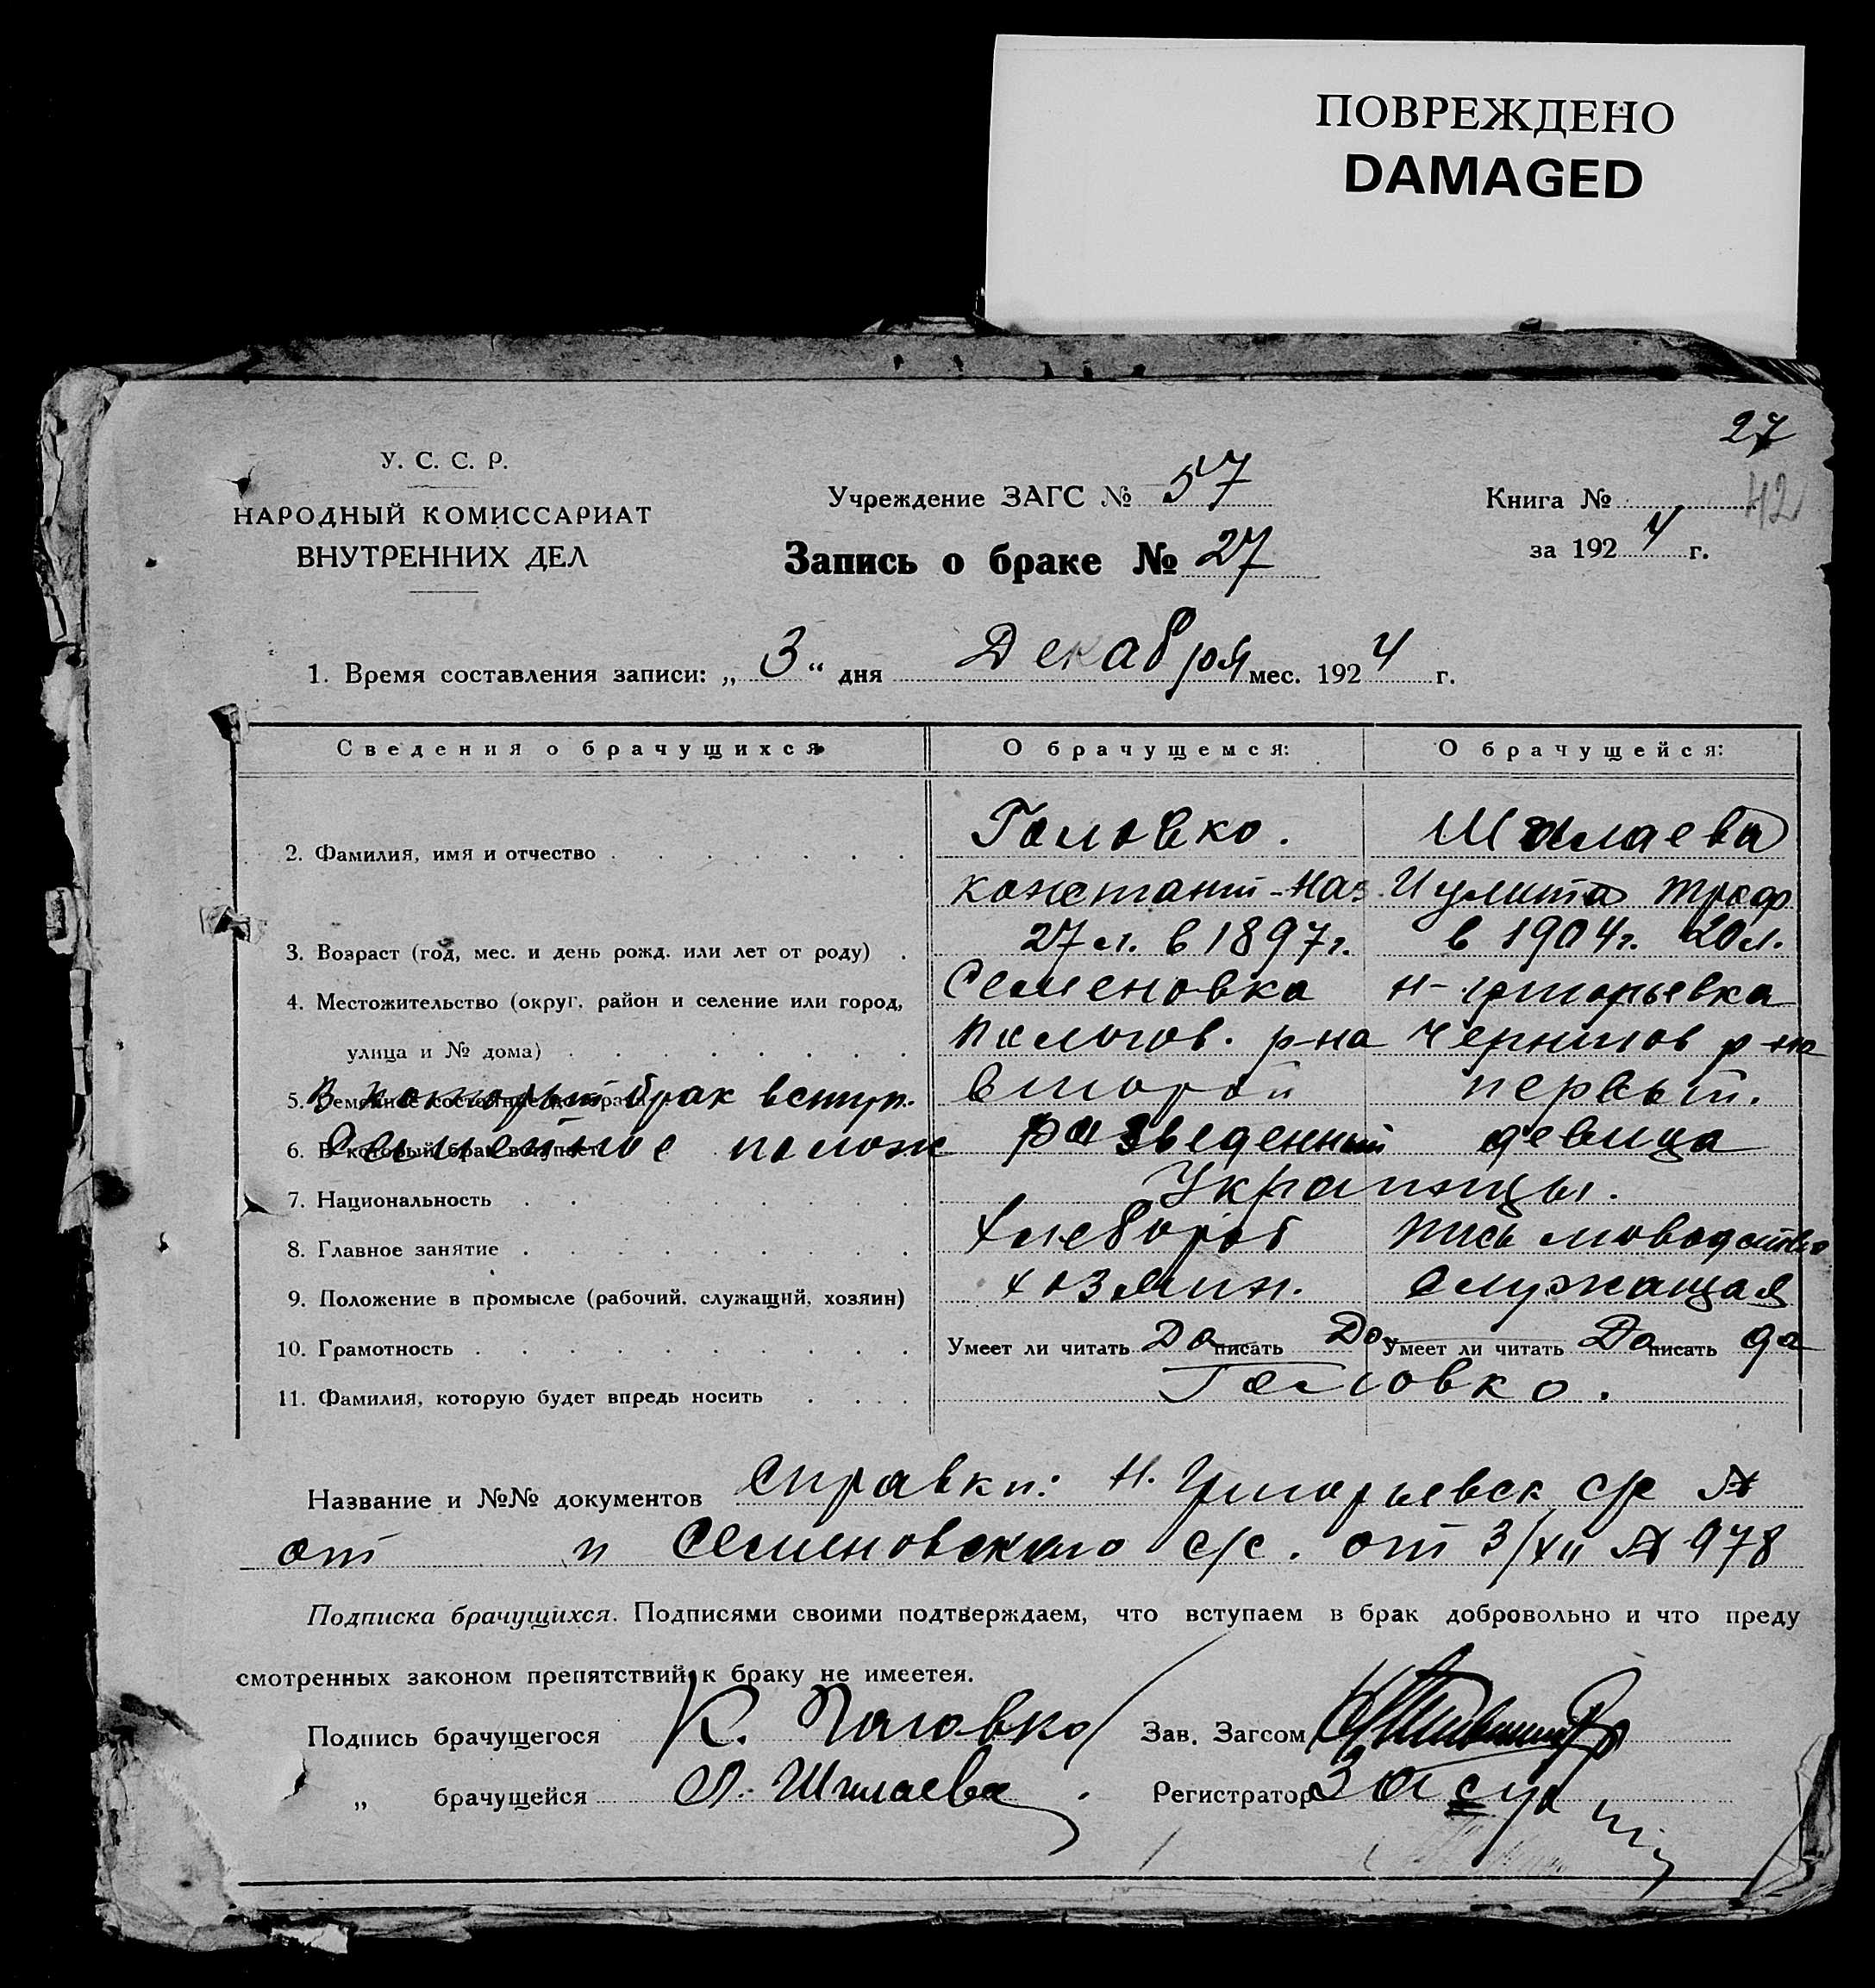 ПОВРЕЖДЕНО
DAMAGED
27
42
У. С. С. Р.
НАРОДНЫЙ КОМИССАРИАТ
ВНУТРЕННИХ ДЕЛ
Учреждение ЗАГС № 57
Книга №
за 1924 г.
Запись о браке № 27
1. Время составления записи: „ 3 “ дня Декабря мес. 1924 г.
Сведения о брачущихся О брачущемся: О брачущейся:
2. Фамилия, имя и отчество Головко. Шалаева
Констант-Наз Иулита Троф
3. Возраст (год, мес. и день рожд. или лет от роду) 27 л. в 1897 г. в 1904 г. 20 л.
4. Местожительство (округ, район и селение или город, Семеновка Н-григорьевка
улица и № дома) Пологов. р-на Чернигов р-на
5. Семейное состояние до брака В который брак вступ. второй первый.
6. В который брак вступает Семейное полож разведенный девица
7. Национальность Украинцы.
8. Главное занятие Хлебороб письмоводство
9. Положение в промысле (рабочий, служащий, хозяин) хозяин. Служащая
10. Грамотность Умеет ли читать Да писать Да Умеет ли читать Да писать да
11. Фамилия, которую будет впредь носить Головко.
Название и №№ документов Справки: Н. Григорьевск с/с №
от и Семеновского с/с. от 3/XII № 978
Подписка брачущихся. Подписями своими подтверждаем, что вступаем в брак добровольно и что преду
смотренных законом препятствий к браку не имеетея.
Подпись брачущегося К. Головко Зав. Загсом
„ брачущейся Шалаева Регистратор